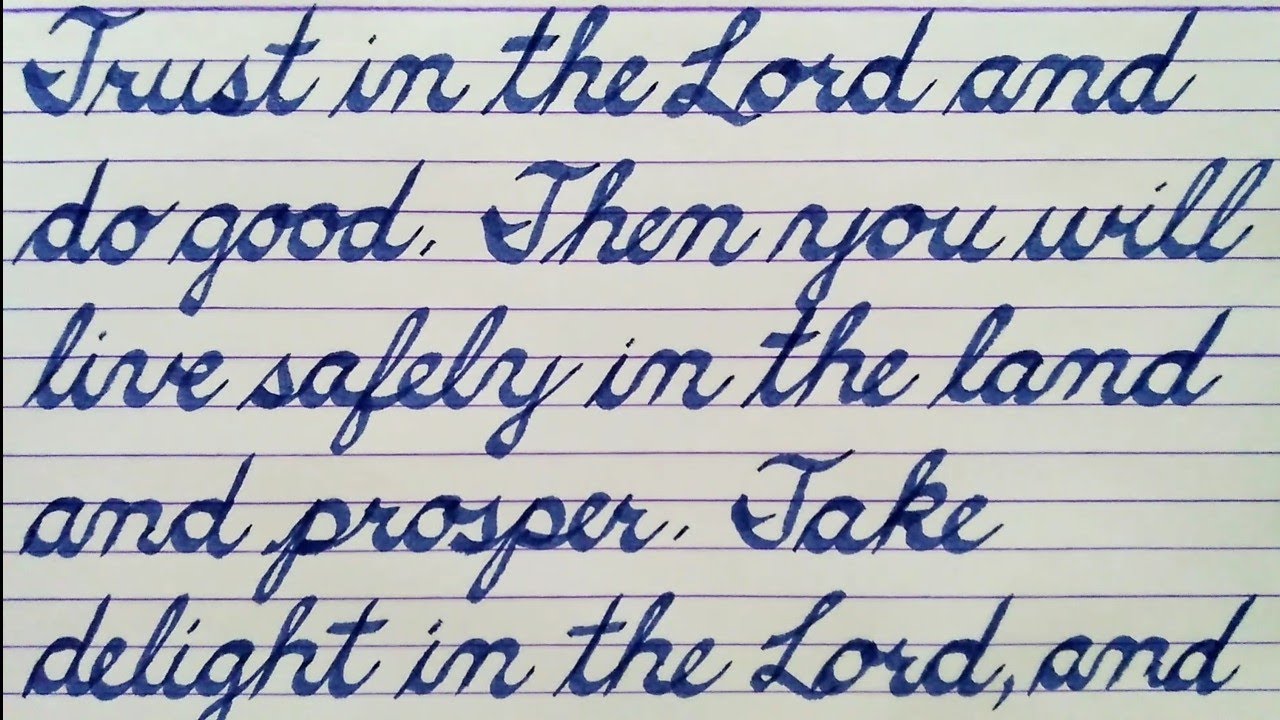 Trust in the Lord and
do good. Then you will
live safely in the land
and prosper. Take
delight in the Lord, and